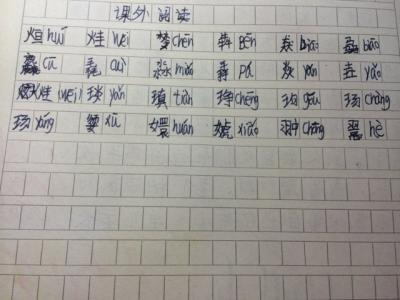 课外阅读
huī 烓 wei chēn 犇 Bēn 猋 biāo 骉 biāo
麤 cū 毳 cuì 淼 miǎo 掱 pá 焱 yàn 垚 yáo
烓 (wei) 琰 yǎn 瑱 tiàn 琤 chēng 玽 gǒu 玚 chàng
玚 yáng xū 嬛 huán xiāo 翀 chōng 翯 hè